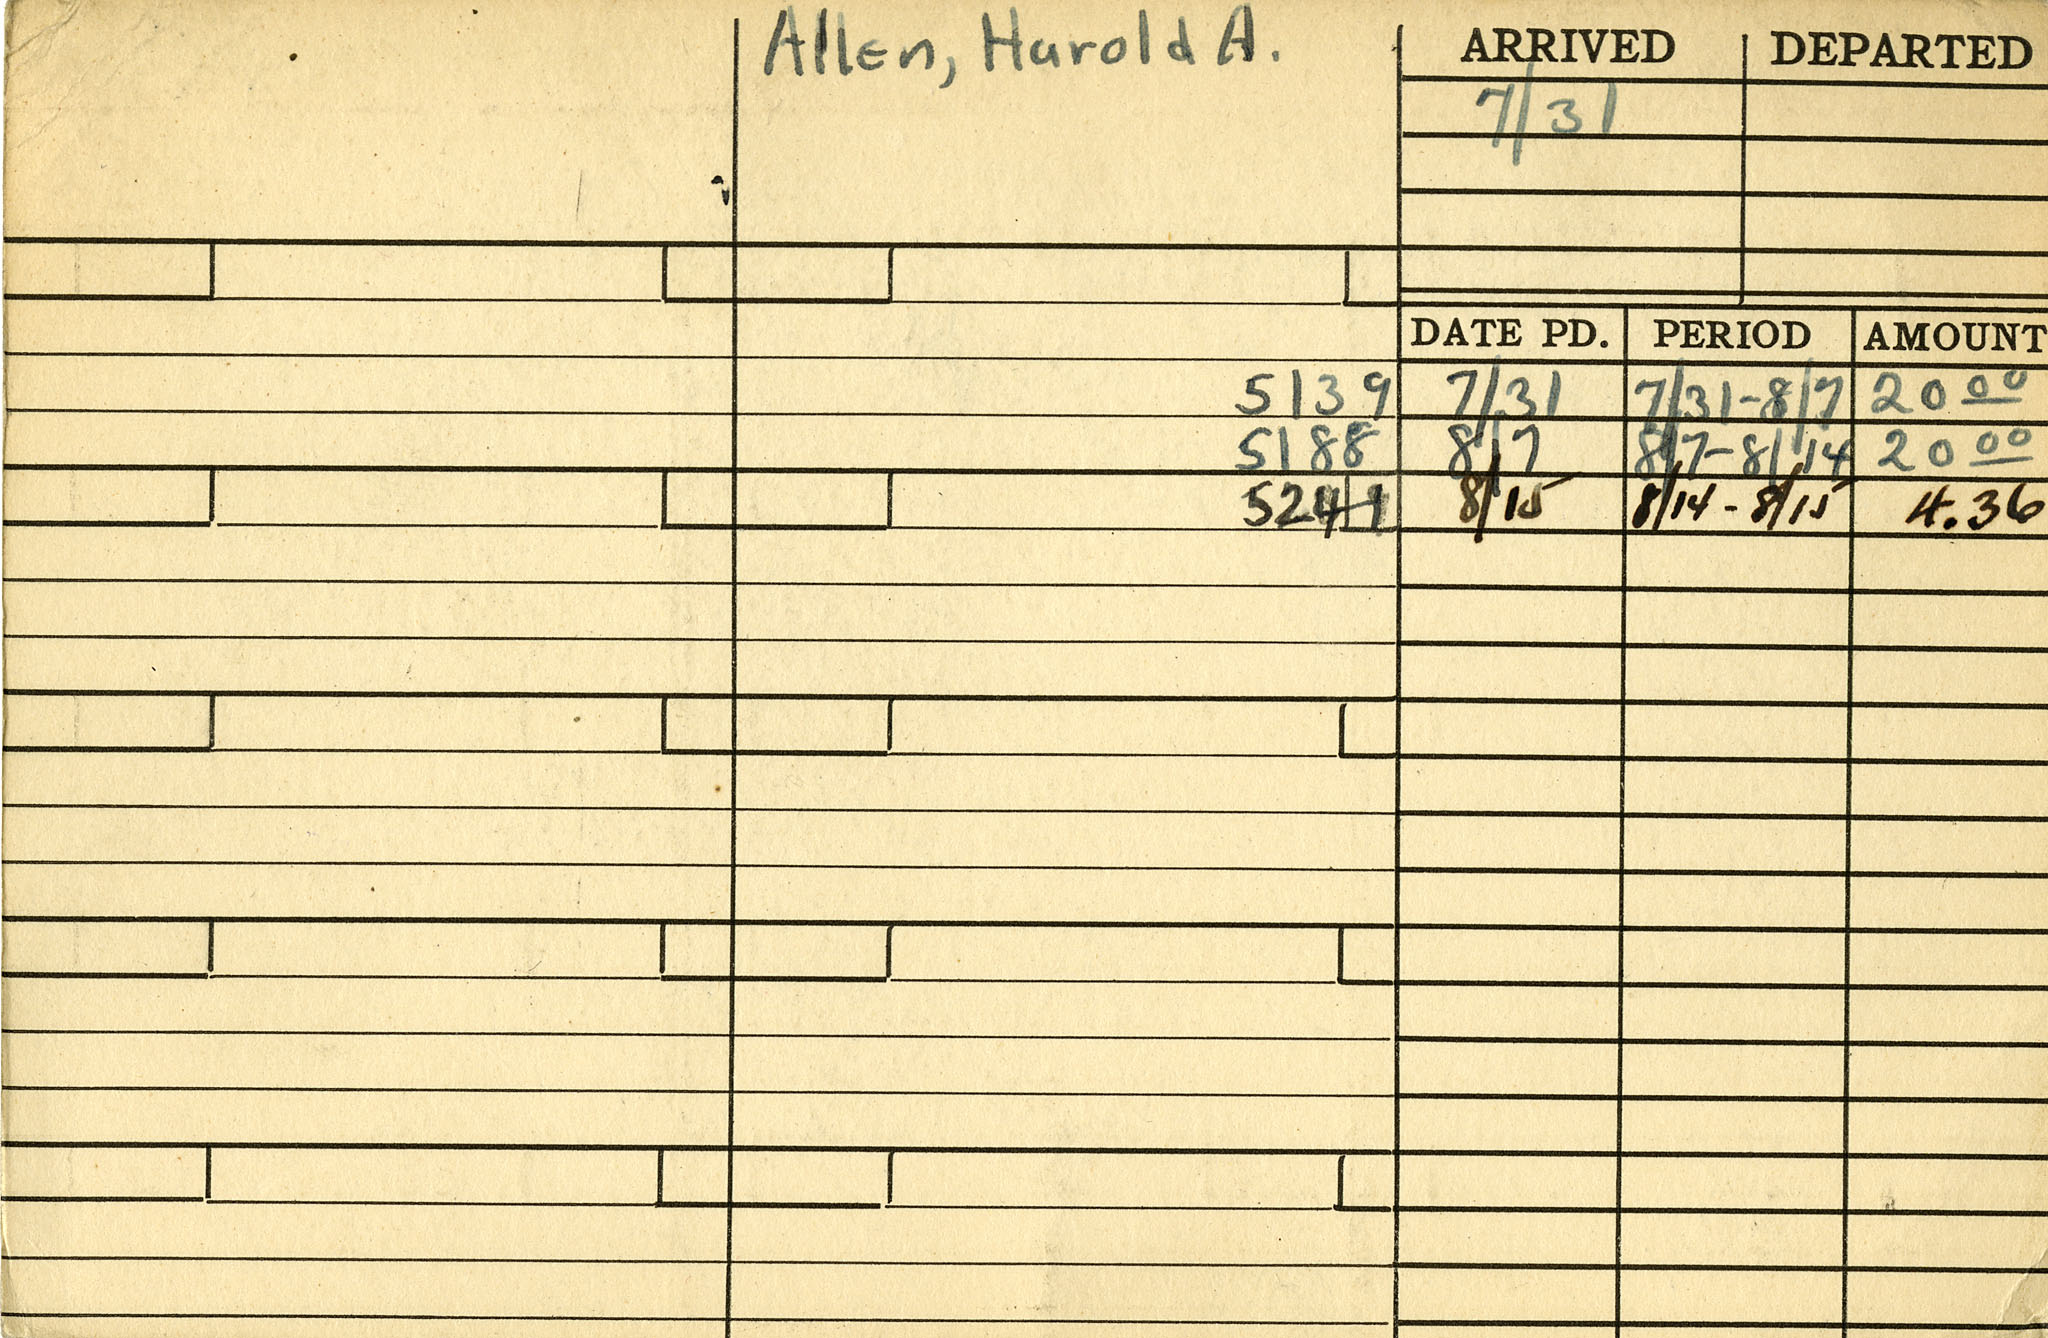 Allen, Harold A.
ARRIVED DEPARTED
7/31
DATE PD. PERIOD AMOUNT
5139 7/31 7/31-8/7 20 00
5188 8/7 8/7-8/14 20 00
5241 8/15 8/14-8/15 4.36